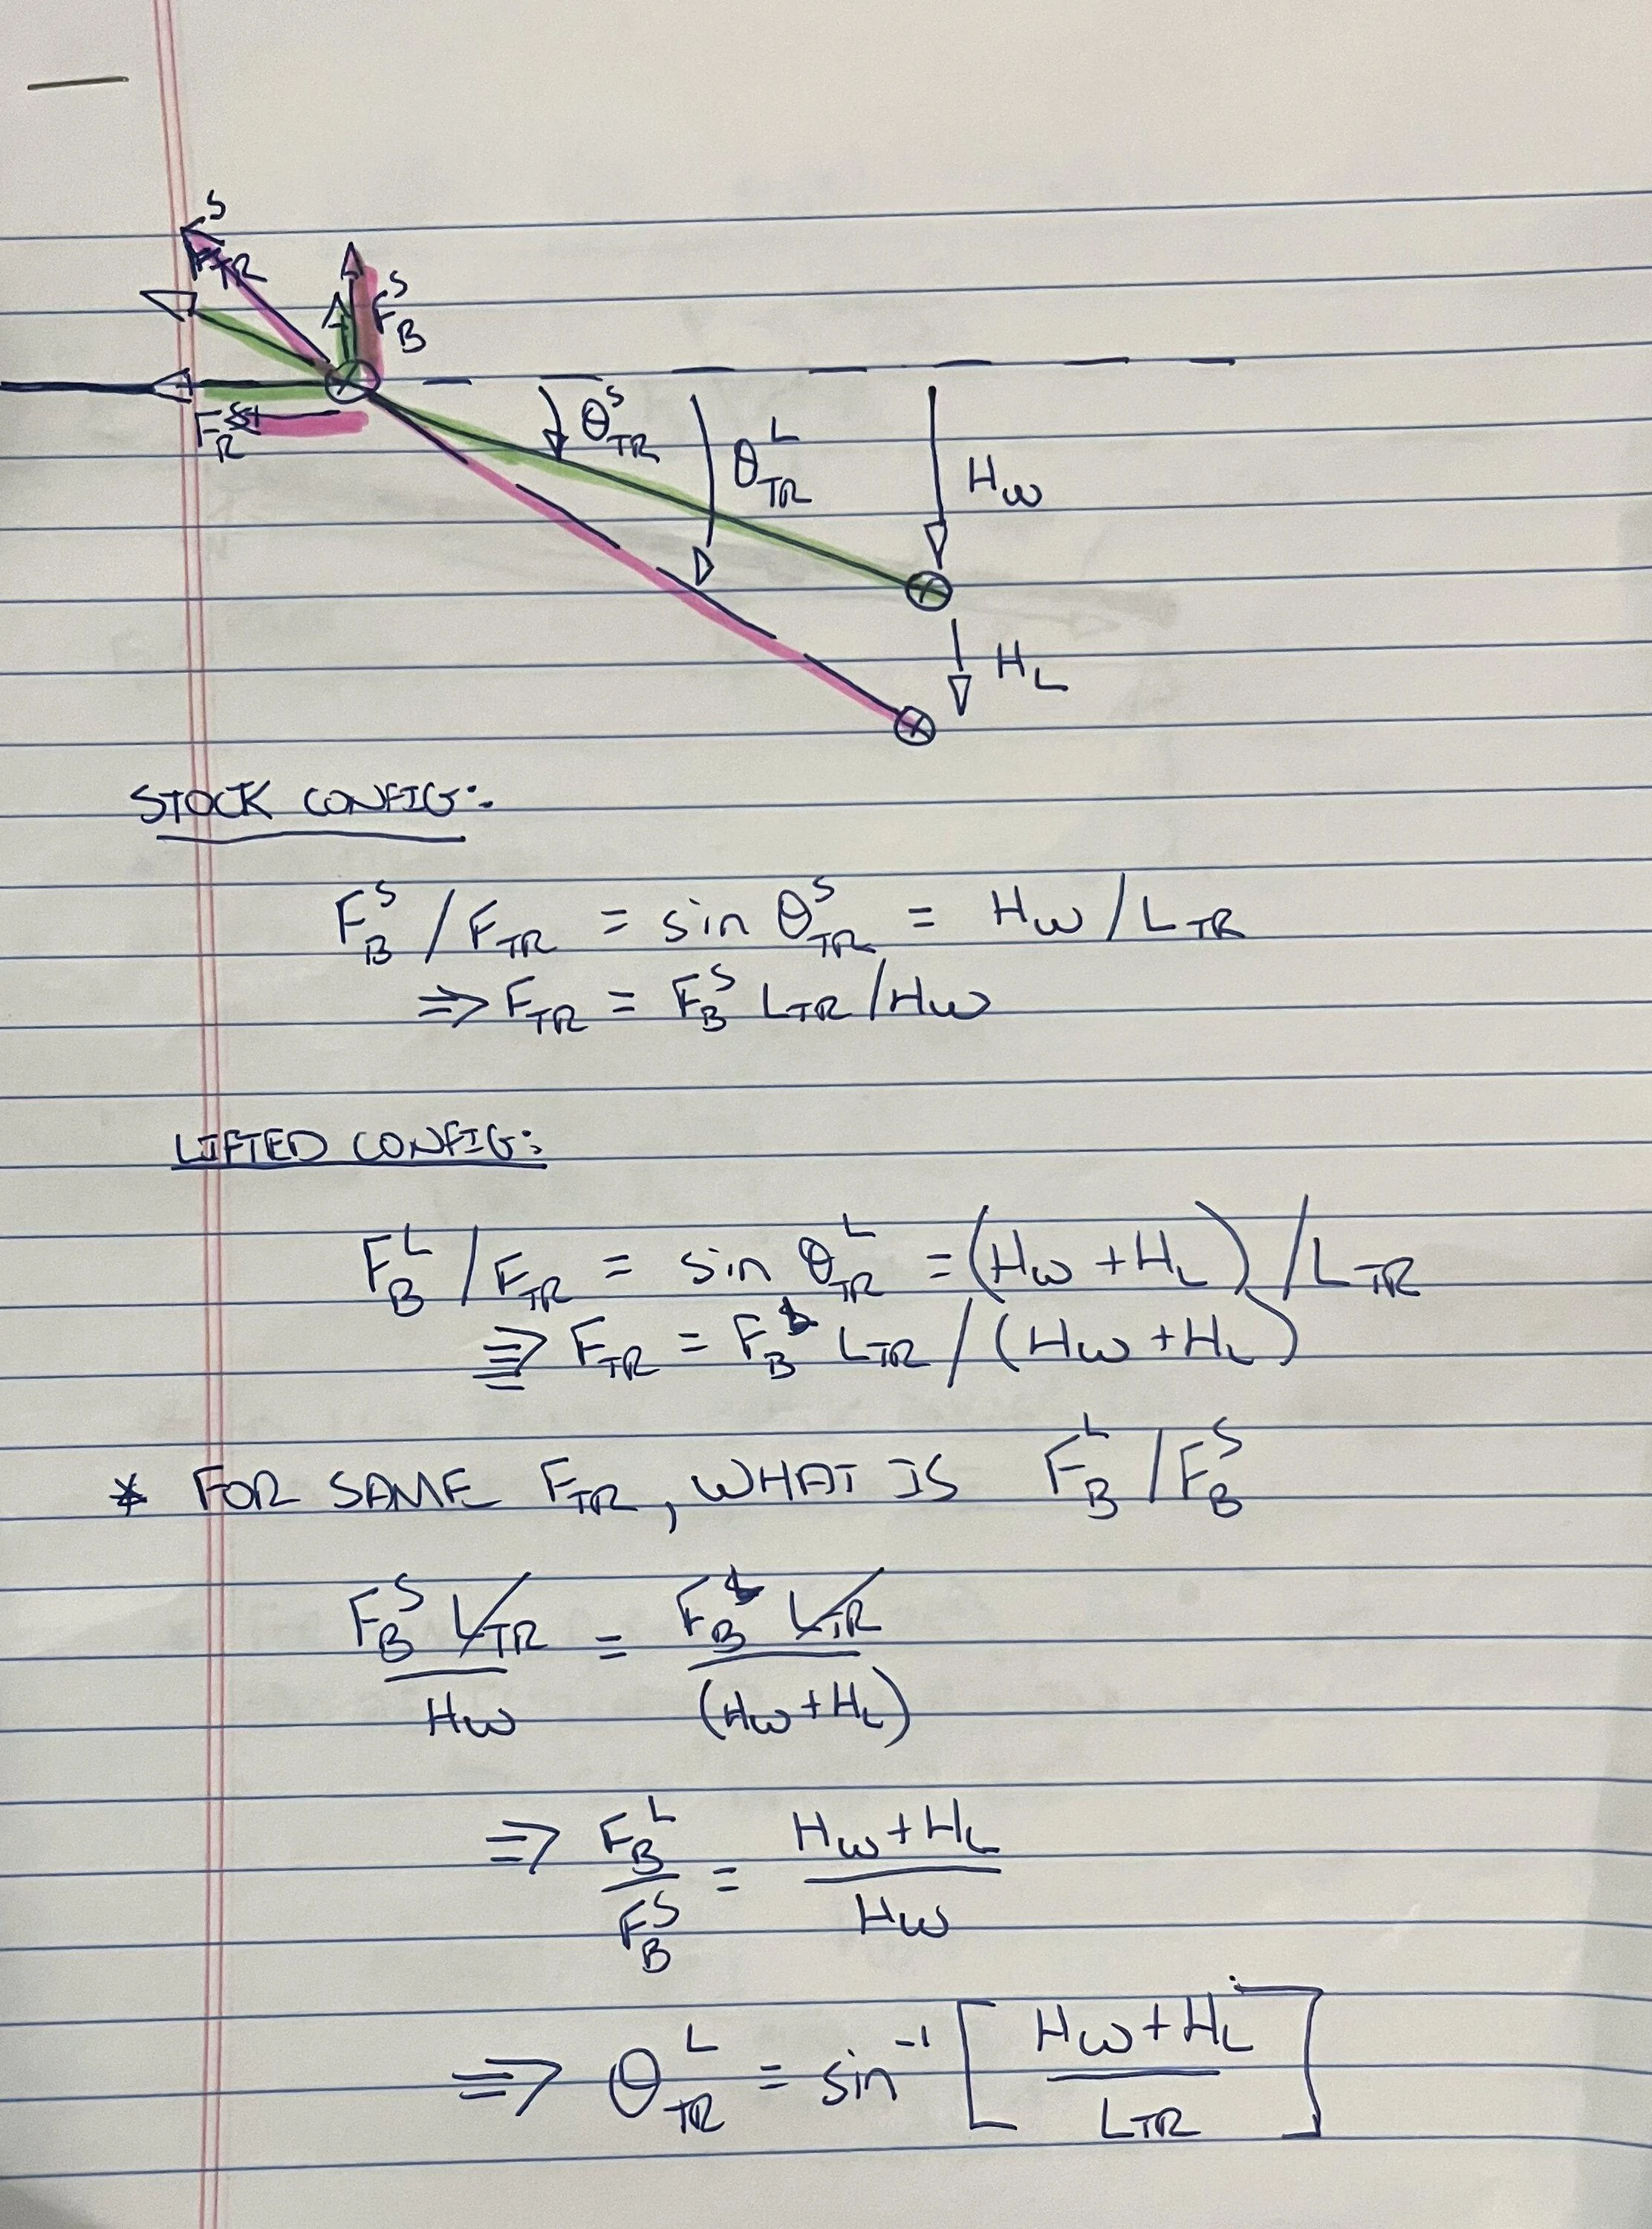 F_TR^S
F_B^S
F_R^S
θ_TR^S
θ_TR^L
H_W
H_L
STOCK CONFIG:
F_B^S / F_TR = sin θ_TR^S = H_W / L_TR
⇒ F_TR = F_B^S L_TR / H_W
LIFTED CONFIG:
F_B^L / F_TR = sin θ_TR^L = (H_W + H_L) / L_TR
⇒ F_TR = F_B^L L_TR / (H_W + H_L)
* FOR SAME F_TR, WHAT IS F_B^L / F_B^S
F_B^S L_TR / H_W = F_B^L L_TR / (H_W + H_L)
⇒ F_B^L / F_B^S = H_W + H_L / H_W
⇒ θ_TR^L = sin^-1 [ H_W + H_L / L_TR ]